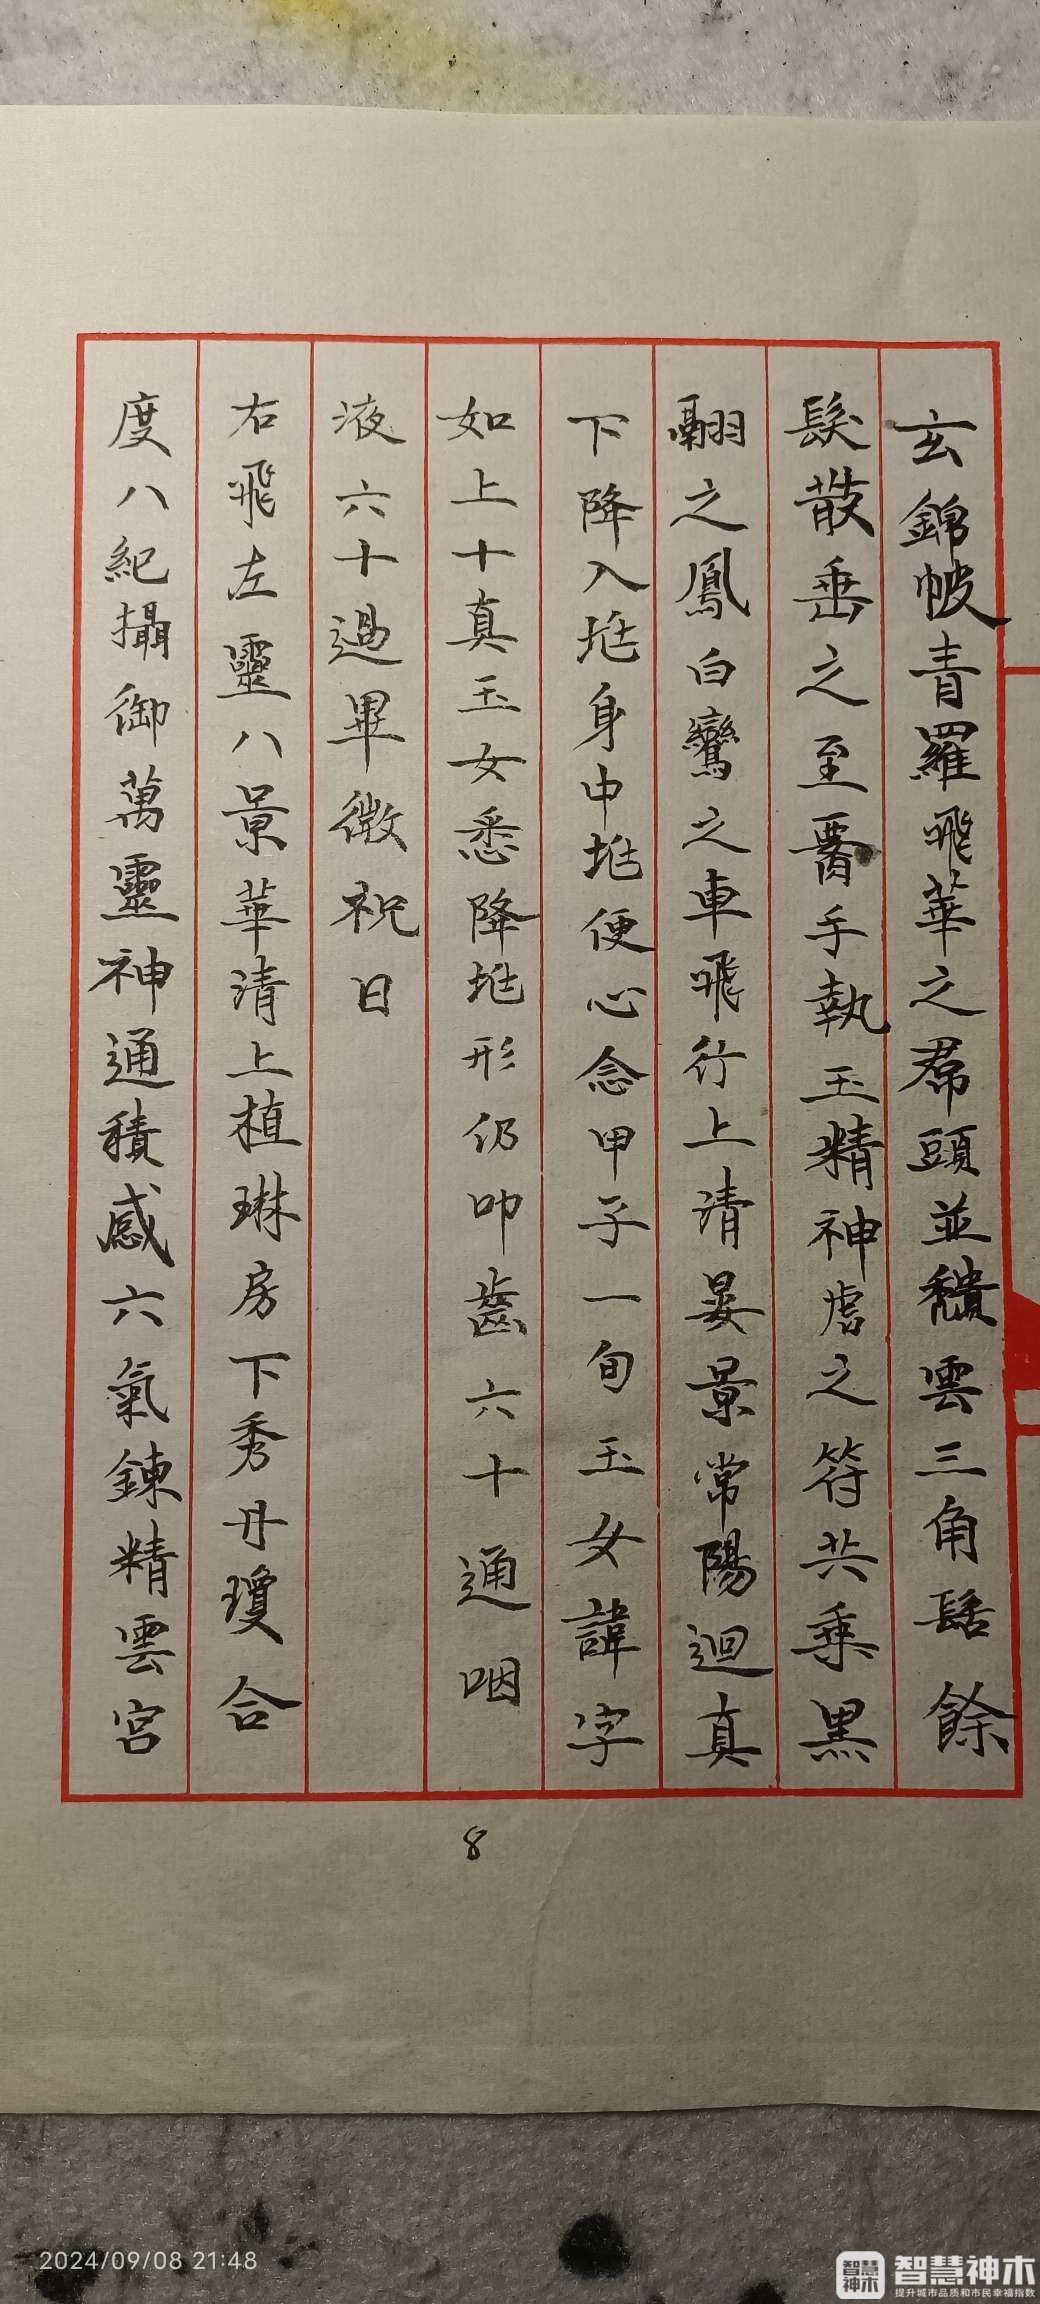 玄錦帔青羅飛華之帬頭並穨雲三角髻餘
髮散垂之至署手執玉精神虎之符共乘黑
翮之鳳白鸞之車飛行上清晏景常陽迴真
下降入㘴身中㘴便心念甲子一旬玉女諱字
如上十真玉女悉降㘴形仍叩齒六十通咽
液六十過畢微祝曰
右飛左靈八景華清上植琳房下秀丹瓊合
度八紀攝御萬靈神通積感六氣鍊精雲宮
8
2024/09/08 21:48
智慧神木
智慧神木
提升城市品质和市民幸福指数